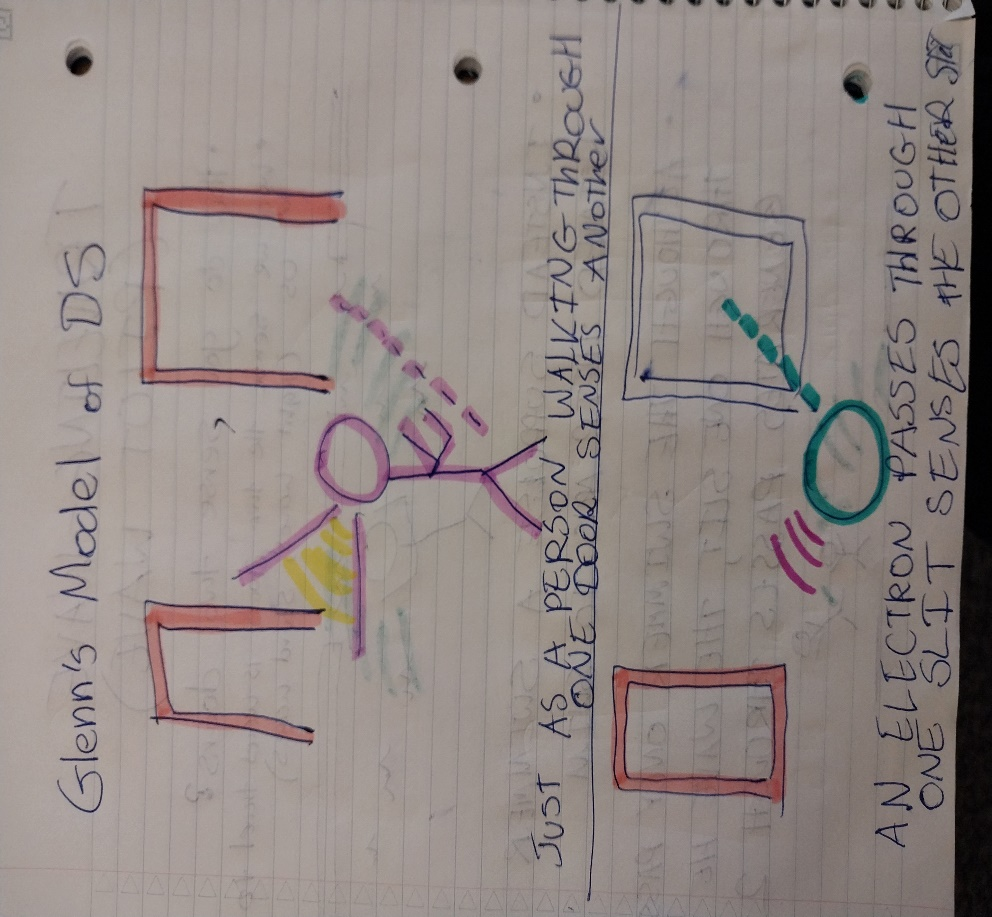 Glenn's Model of DS
JUST AS A PERSON WALKING THROUGH
ONE DOOR SENSES ANOTHER
AN ELECTRON PASSES THROUGH
ONE SLIT SENSES THE OTHER